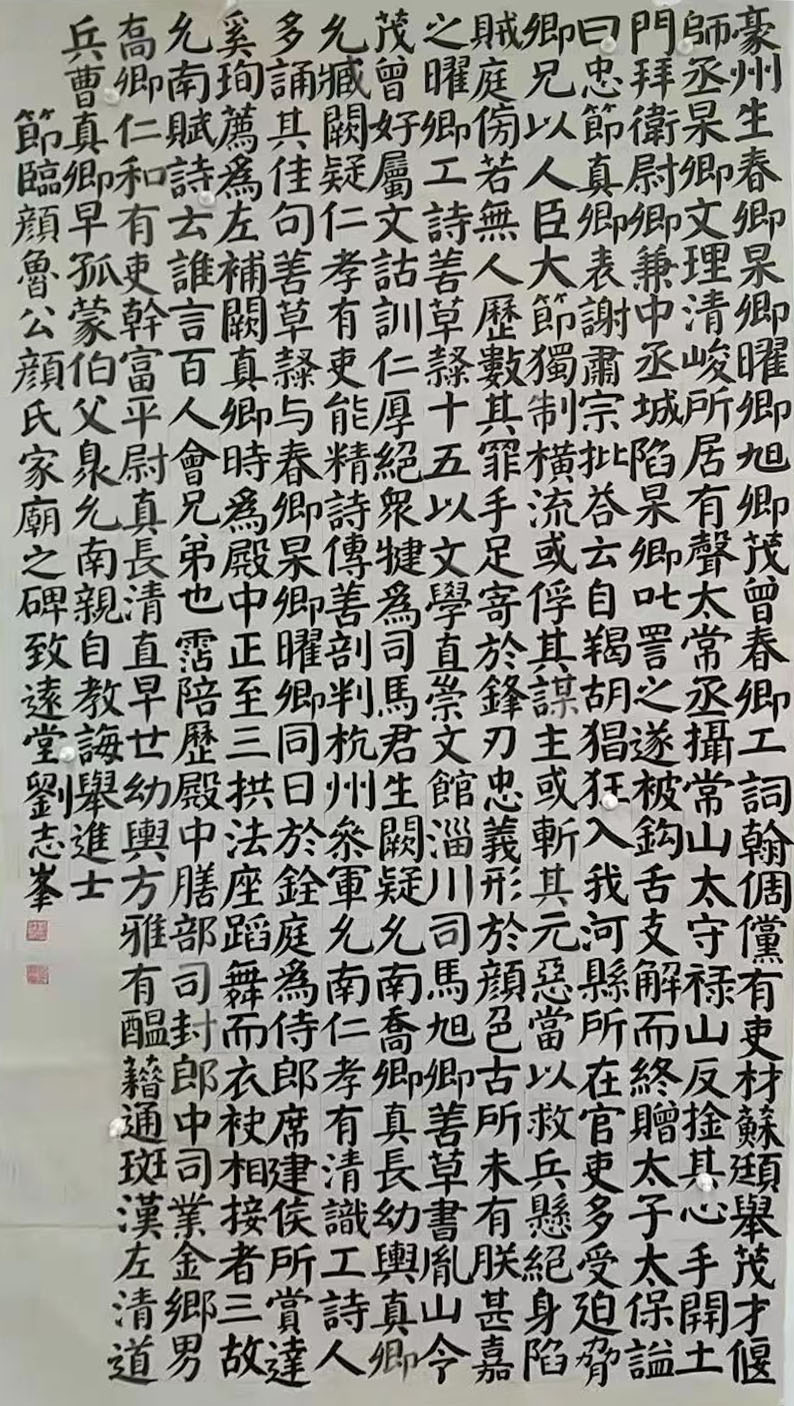 豪州生春卿杲卿曜卿旭卿茂曾春卿工詞翰倜儻有吏材蘇頲舉茂才偃
師丞杲卿文理清峻所居有聲太常丞攝常山太守禄山反捦其心手開土
門拜衛尉卿兼中丞城陷杲卿叱詈之遂被鈎舌支解而終贈太子太保謚
曰忠節真卿表謝肅宗批荅云自羯胡猖狂入我河縣所在官吏多受迫脅
卿兄以人臣大節獨制橫流或俘其謀主或斬其元惡當以救兵懸絕身陷
賊庭傍若無人歷數其罪手足寄於鋒刃忠義形於顏色古所未有朕甚嘉
之曜卿工詩善草隸十五以文學直崇文館淄川司馬旭卿善草書胤山令
茂曾好屬文詁訓仁厚絕眾犍為司馬君生闕疑允南喬卿真長幼輿真卿
允臧闕疑仁孝有吏能精詩傳善剖判杭州叅軍允南仁孝有清識工詩人
多誦其佳句善草隸与春卿杲卿曜卿同日於銓庭為侍郎席建侯所賞達
奚珣薦為左補闕真卿時為殿中正至三拱法座蹈舞而衣袂相接者三故
允南賦詩云誰言百人會兄弟也霑陪歷殿中膳部司封郎中司業金鄉男
喬卿仁和有吏幹富平尉真長清直早世幼輿方雅有醞藉通班漢左清道
兵曹真卿早孤蒙伯父臮允南親自教誨舉進士
節臨顏魯公顏氏家廟之碑致遠堂劉志峯